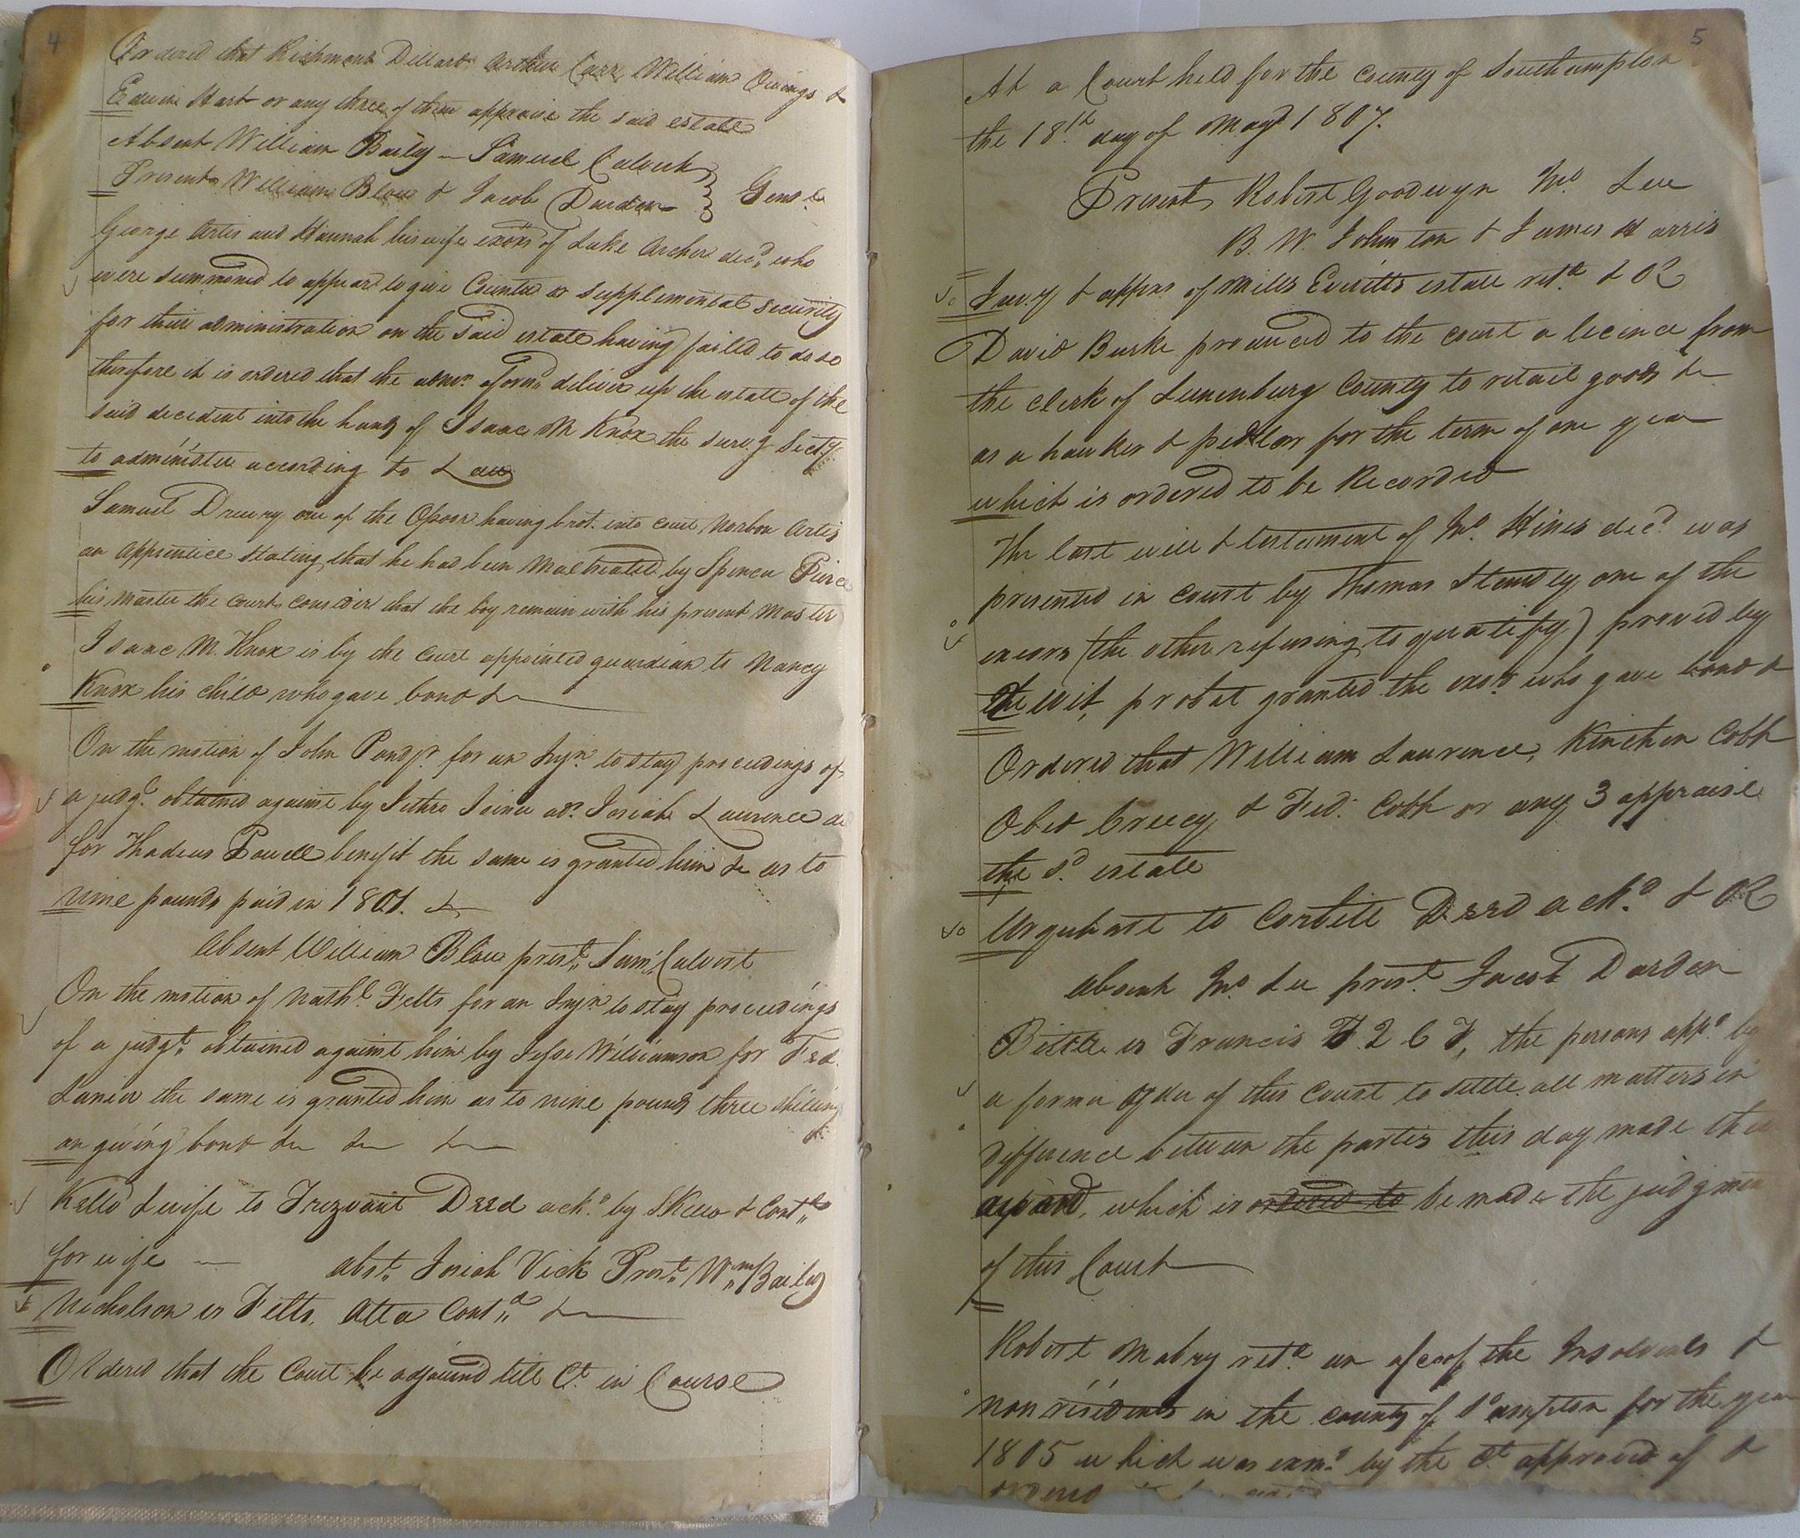 4
Ordered that Richmond Dillard Arthur Carr William Owings &
Edwin Hart or any three of them appraise the said estate
Absent William Baily — Samuel Calvert
Present William Blow & Jacob Darden Gent &c
George Artis and Hannah his wife exors of Luke Archer decd. who
were summoned to appear to give Counter or supplemental security
for their administration on the said estate having failed to do so
therefore it is ordered that the admr. aforesd deliver up the estate of the
said decedent into the hands of Isaac M Knox the surug Secty.
to administer according to Law
Samuel Drewry one of the Opoor having brot. into court Norbon Artis
an apprentice stating that he had been Maltreated by Spencer Peirce
his Master the Court consider that the boy remain with his present Master
Isaac M. Knox is by the court appointed guardian to Nancy
Knox his child who gave bond &
On the motion of John Pond jr. for an Injn. to stay proceedings of
a judgt. obtained against by Jethro Joiner adr. Josiah Laurence
for Thadeus Powell benefit the same is granted him &c as to
nine pounds paid in 1801. &
Absent William Blow prest. Saml. Calvert
On the motion of Nathl. Felts for an Injn. to stay proceedings
of a judgt. obtained against him by Jesse Williamson for Fred.
Lanier the same is granted him as to nine pounds three shillings
on giving bond &c &c &
Kello & wife to Trezvant Deed ackd. by S Kello & Contd.
for wife — abst. Josiah Vick Prest. Wm Baily
Nicholson vs Felts. Atta Contd. &
Ordered that the Court be adjournd till Ct. in Course
5
At a Court held for the County of Southampton
the 18th. day of May 1807.
Present Robert Goodwyn Jno. Lee
B. W. Johnston & James Harris
Invy & apprs of Mills Everitts estate retd. & OR
David Burke produced to the court a licence from
the clerk of Lunenburg County to retail goods &c
as a hawker & pedlar for the term of one year
which is ordered to be Recorded
The last will & testament of Jno. Hines decd. was
presented in Court by Thomas Standley one of the
exors (the other refusing to qualify) proved by
the wit, probat granted the exor who gave bond &
Ordered that William Laurence, Kinchin Cobb
Obed Creecy & Fed. Cobb or any 3 appraise
the sd. estate
Urquhart to Corbitt Deed ackd. & OR
Absent Jno. Lee prest. Jacob Darden
Bittle vs Francis the persons appd. by
a former Order of this Court to settle all matters in
difference between the parties this day made their
award, which is ordered to be made the judgment
of this Court
Robert Mabry retd. an of the Insolvents &
non residents in the county of So.ampton for the year
1805 which was exmd. by the Ct. approved of &
ordered